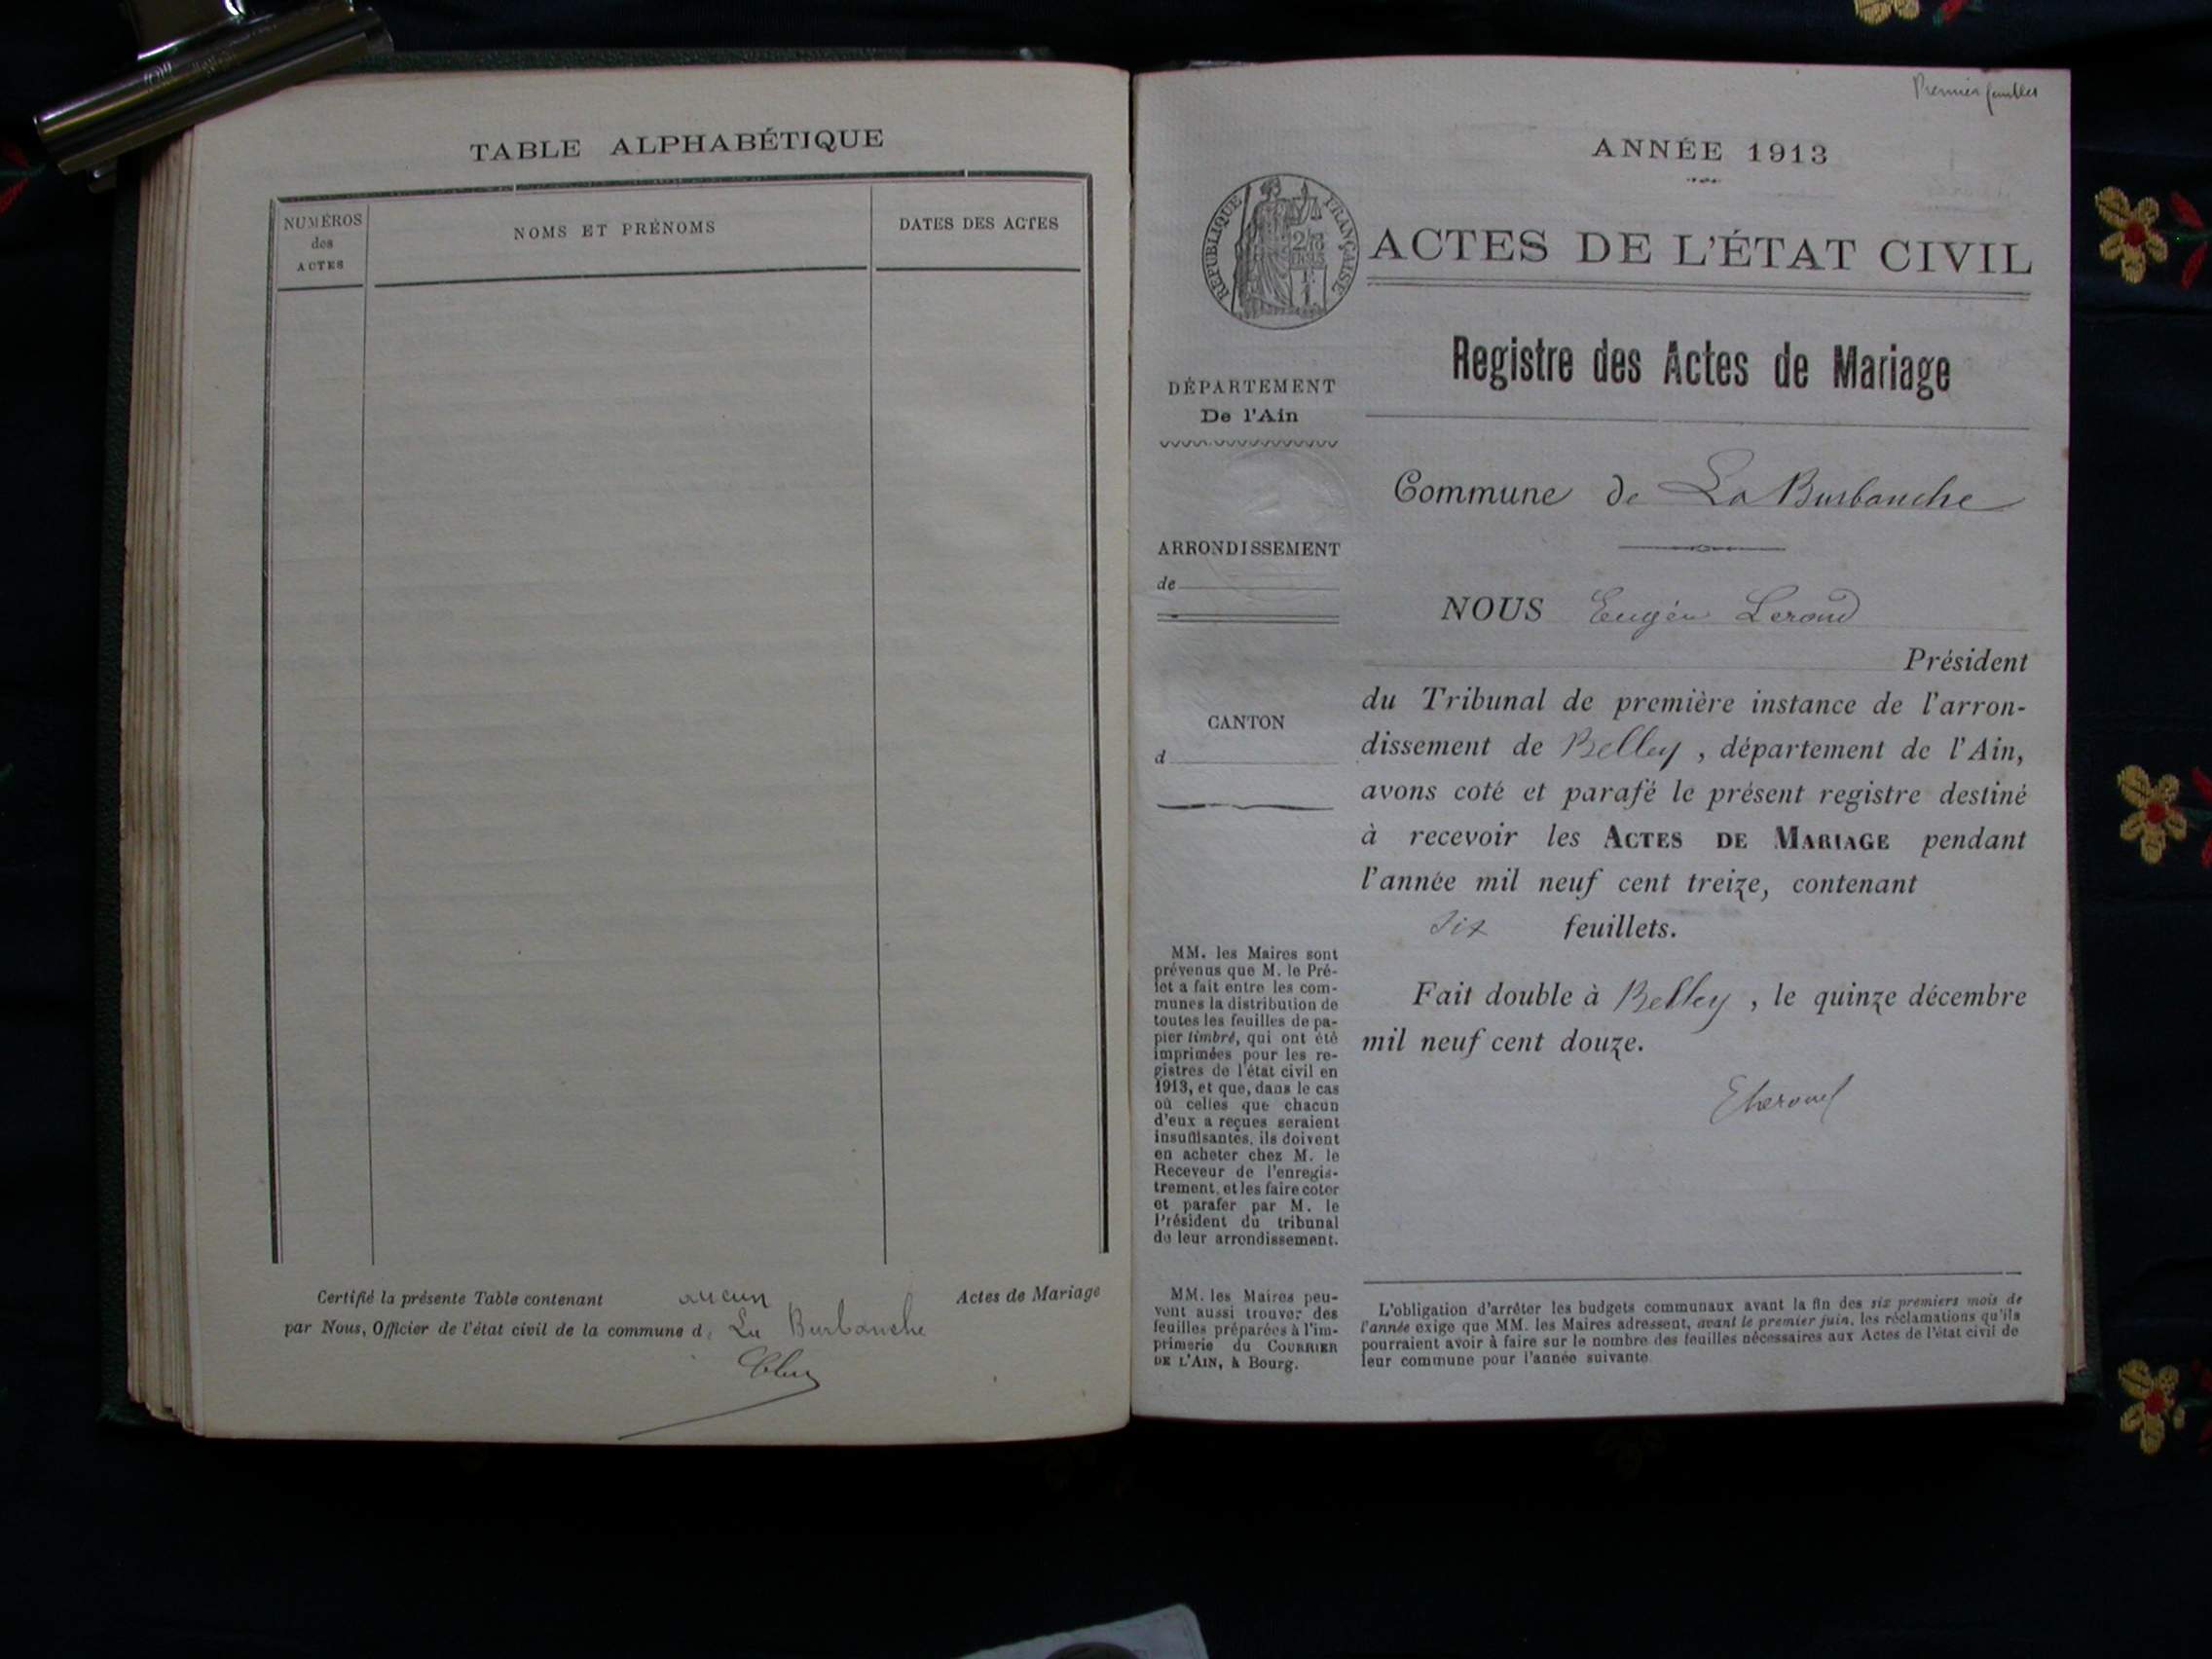 TABLE ALPHABÉTIQUE
NUMÉROS
des
ACTES
NOMS ET PRÉNOMS
DATES DES ACTES
Certifié la présente Table contenant aucun Actes de Mariage
par Nous, Officier de l'état civil de la commune d La Burbanche
Premier
ANNÉE 1913
RÉPUBLIQUE FRANÇAISE
ACTES DE L'ÉTAT CIVIL
Registre des Actes de Mariage
DÉPARTEMENT
De l'Ain
ARRONDISSEMENT
de
CANTON
d
MM. les Maires sont
prévenus que M. le Pré-
fet a fait entre les com-
munes la distribution de
toutes les feuilles de pa-
pier timbré, qui ont été
imprimées pour les re-
gistres de l'état civil en
1913, et que, dans le cas
où celles que chacun
d'eux a reçues seraient
insuffisantes, ils doivent
en acheter chez M. le
Receveur de l'enregis-
trement, et les faire coter
et parafer par M. le
Président du tribunal
de leur arrondissement.
MM. les Maires peu-
vent aussi trouver des
feuilles préparées à l'im-
primerie du COURRIER
DE L'AIN, à Bourg.
Commune de La Burbanche
NOUS Eugène Leroud
Président
du Tribunal de première instance de l'arron-
dissement de Belley , département de l'Ain,
avons coté et parafé le présent registre destiné
à recevoir les ACTES DE MARIAGE pendant
l'année mil neuf cent treize, contenant
six feuillets.
Fait double à Belley , le quinze décembre
mil neuf cent douze.
L'obligation d'arrêter les budgets communaux avant la fin des six premiers mois de
l'année exige que MM. les Maires adressent, avant le premier juin, les réclamations qu'ils
pourraient avoir à faire sur le nombre des feuilles nécessaires aux Actes de l'état civil de
leur commune pour l'année suivante.